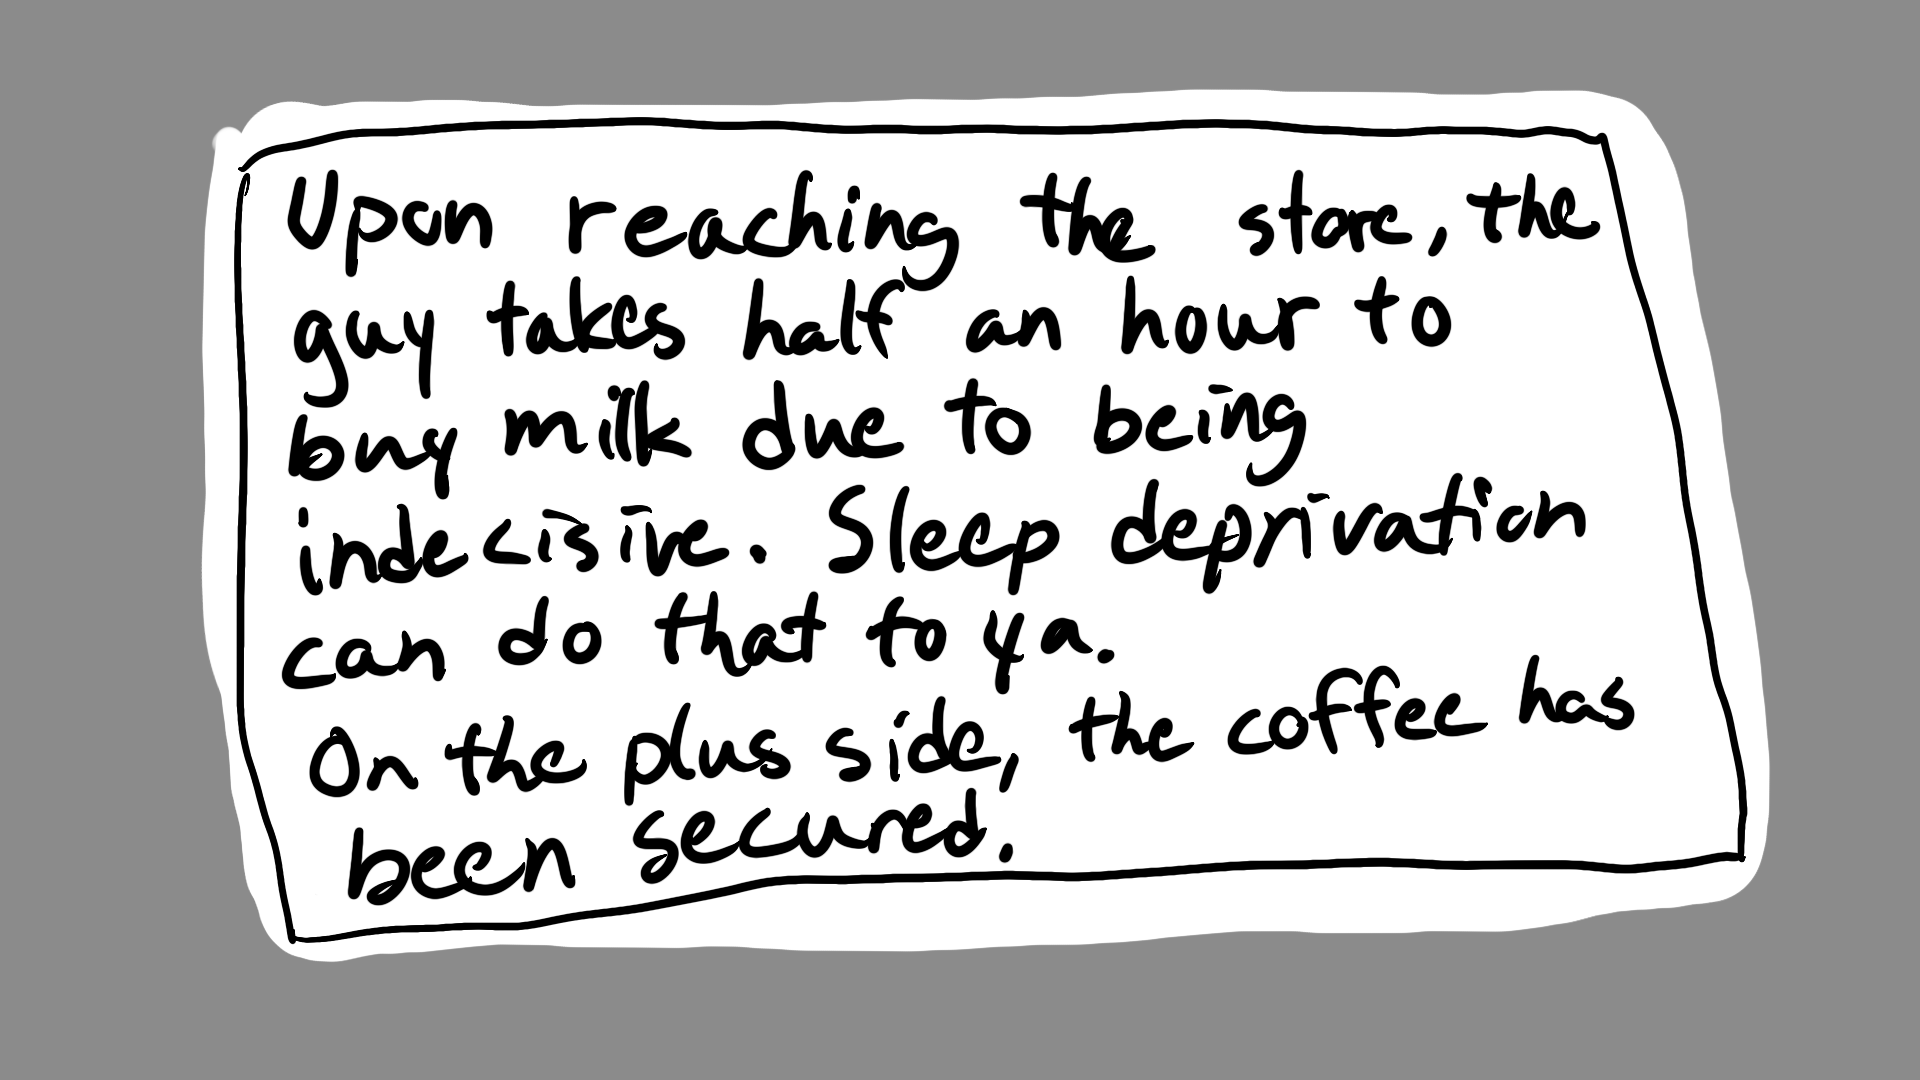 Upon reaching the store, the
guy takes half an hour to
buy milk due to being
indecisive. Sleep deprivation
can do that to ya.
On the plus side, the coffee has
been secured.